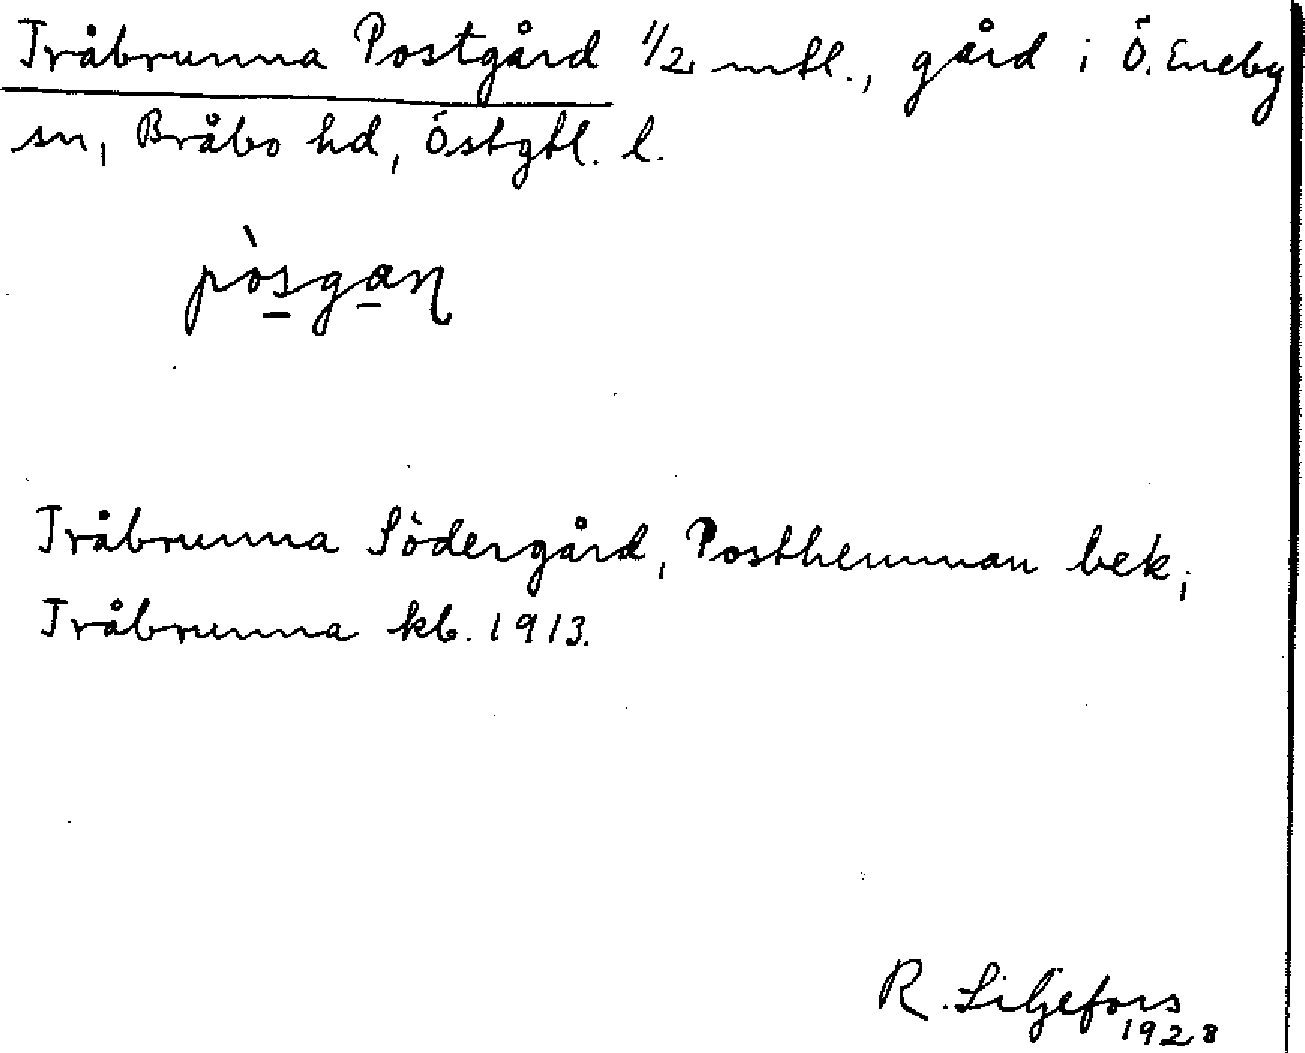 Tråbrunna Postgård 1/2 mtl., gård i Ö. Eneby
sn, Bråbo hd, Östgtl. l.
pòsgan
Tråbrunna Södergård, Posthemman bek;
Tråbrunna kb. 1913.
R. Liljefors
1928